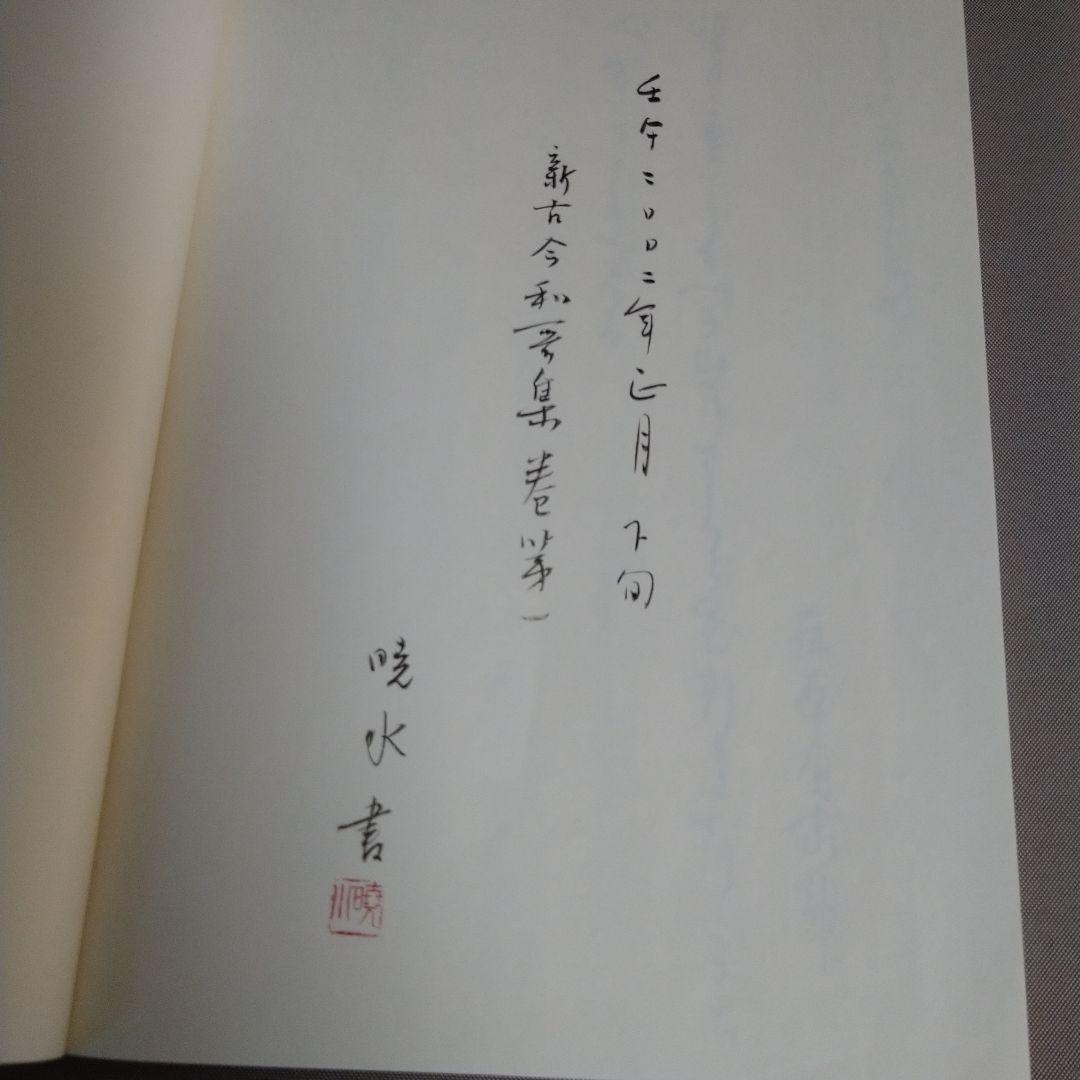 壬午二〇〇二年正月 下旬
新古今和哥集 巻第一
暁水 書
暁水